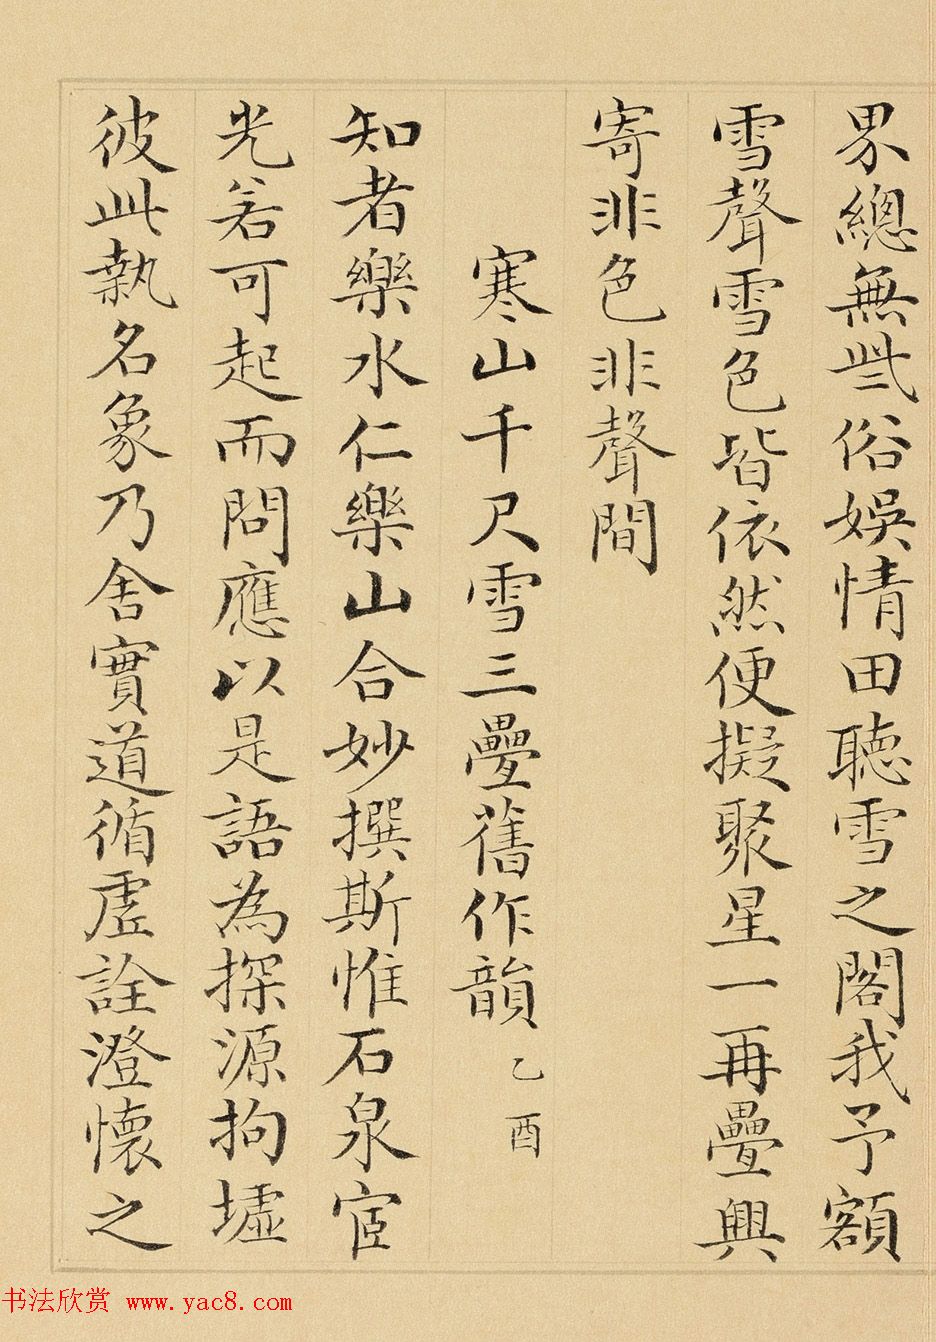 界總無些俗娛情田聽雪之閣我予額
雪聲雪色皆依然便擬聚星一再疊興
寄非色非聲間
寒山千尺雪三疊舊作韻 乙酉
知者樂水仁樂山合妙撰斯惟石泉宦
光若可起而問應以是語為探源拘墟
彼此執名象乃舍實道循虛詮澄懷之
书法欣赏 www.yac8.com